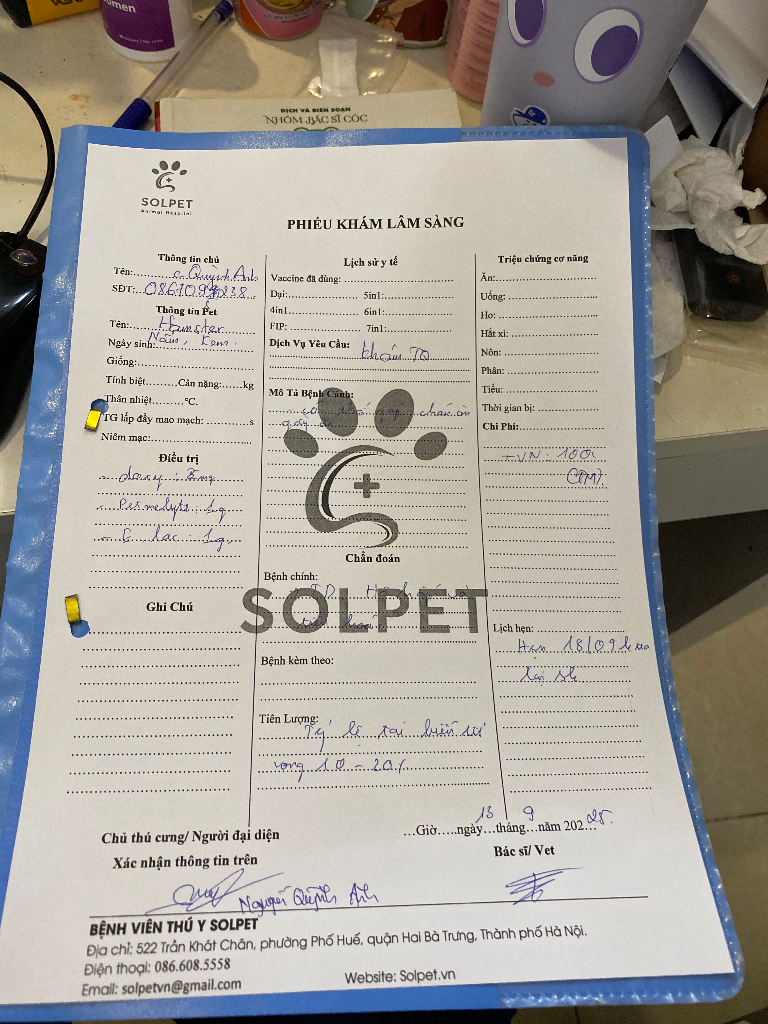 omen
DỊCH VÀ BIÊN SOẠN
NHÓM BÁC SĨ CỐC
SOLPET
Animal Hospital
PHIẾU KHÁM LÂM SÀNG
Thông tin chủ
Tên:.......c Quỳnh Anh
SĐT:
Thông tin Pet
Tên: Hamster
Ngày sinh: Nấm, Kem.
Giống:
Tính biệt..........Cân nặng:......kg
Thân nhiệt..........°C.
TG lấp đầy mao mạch: ..............s
Niêm mạc:
Điều trị
doxy : 5mg
Permelyte 1g
lac 1g
Ghi Chú
Lịch sử y tế
Vaccine đã dùng:
Dại: 5in1:
4in1 6in1:
FIP: 7in1:
Dịch Vụ Yêu Cầu: khám TQ
Mô Tả Bệnh Cảnh:
chán ăn
gầy
Chẩn đoán
Bệnh chính:
TD
SOLPET
Bệnh kèm theo:
Tiên Lượng:
Tỷ lệ tai biến tử
vong 10 - 20%
Triệu chứng cơ năng
Ăn:
Uống:
Ho:
Hắt xì:
Nôn:
Phân:
Tiểu:
Thời gian bị:
Chi Phí:
TVN : 100k
(TM).
Lịch hẹn:
Hẹn 18/09
lại sk
...Giờ.....ngày 13 tháng 9 năm 2025.
Chủ thú cưng/ Người đại diện
Xác nhận thông tin trên
Bác sĩ/ Vet
Nguyễn Quỳnh Anh
BỆNH VIÊN THÚ Y SOLPET
Địa chỉ: 522 Trần Khát Chân, phường Phố Huế, quận Hai Bà Trưng, Thành phố Hà Nội.
Điện thoại: 086.608.5558
Email: solpetvn@gmail.com
Website: Solpet.vn